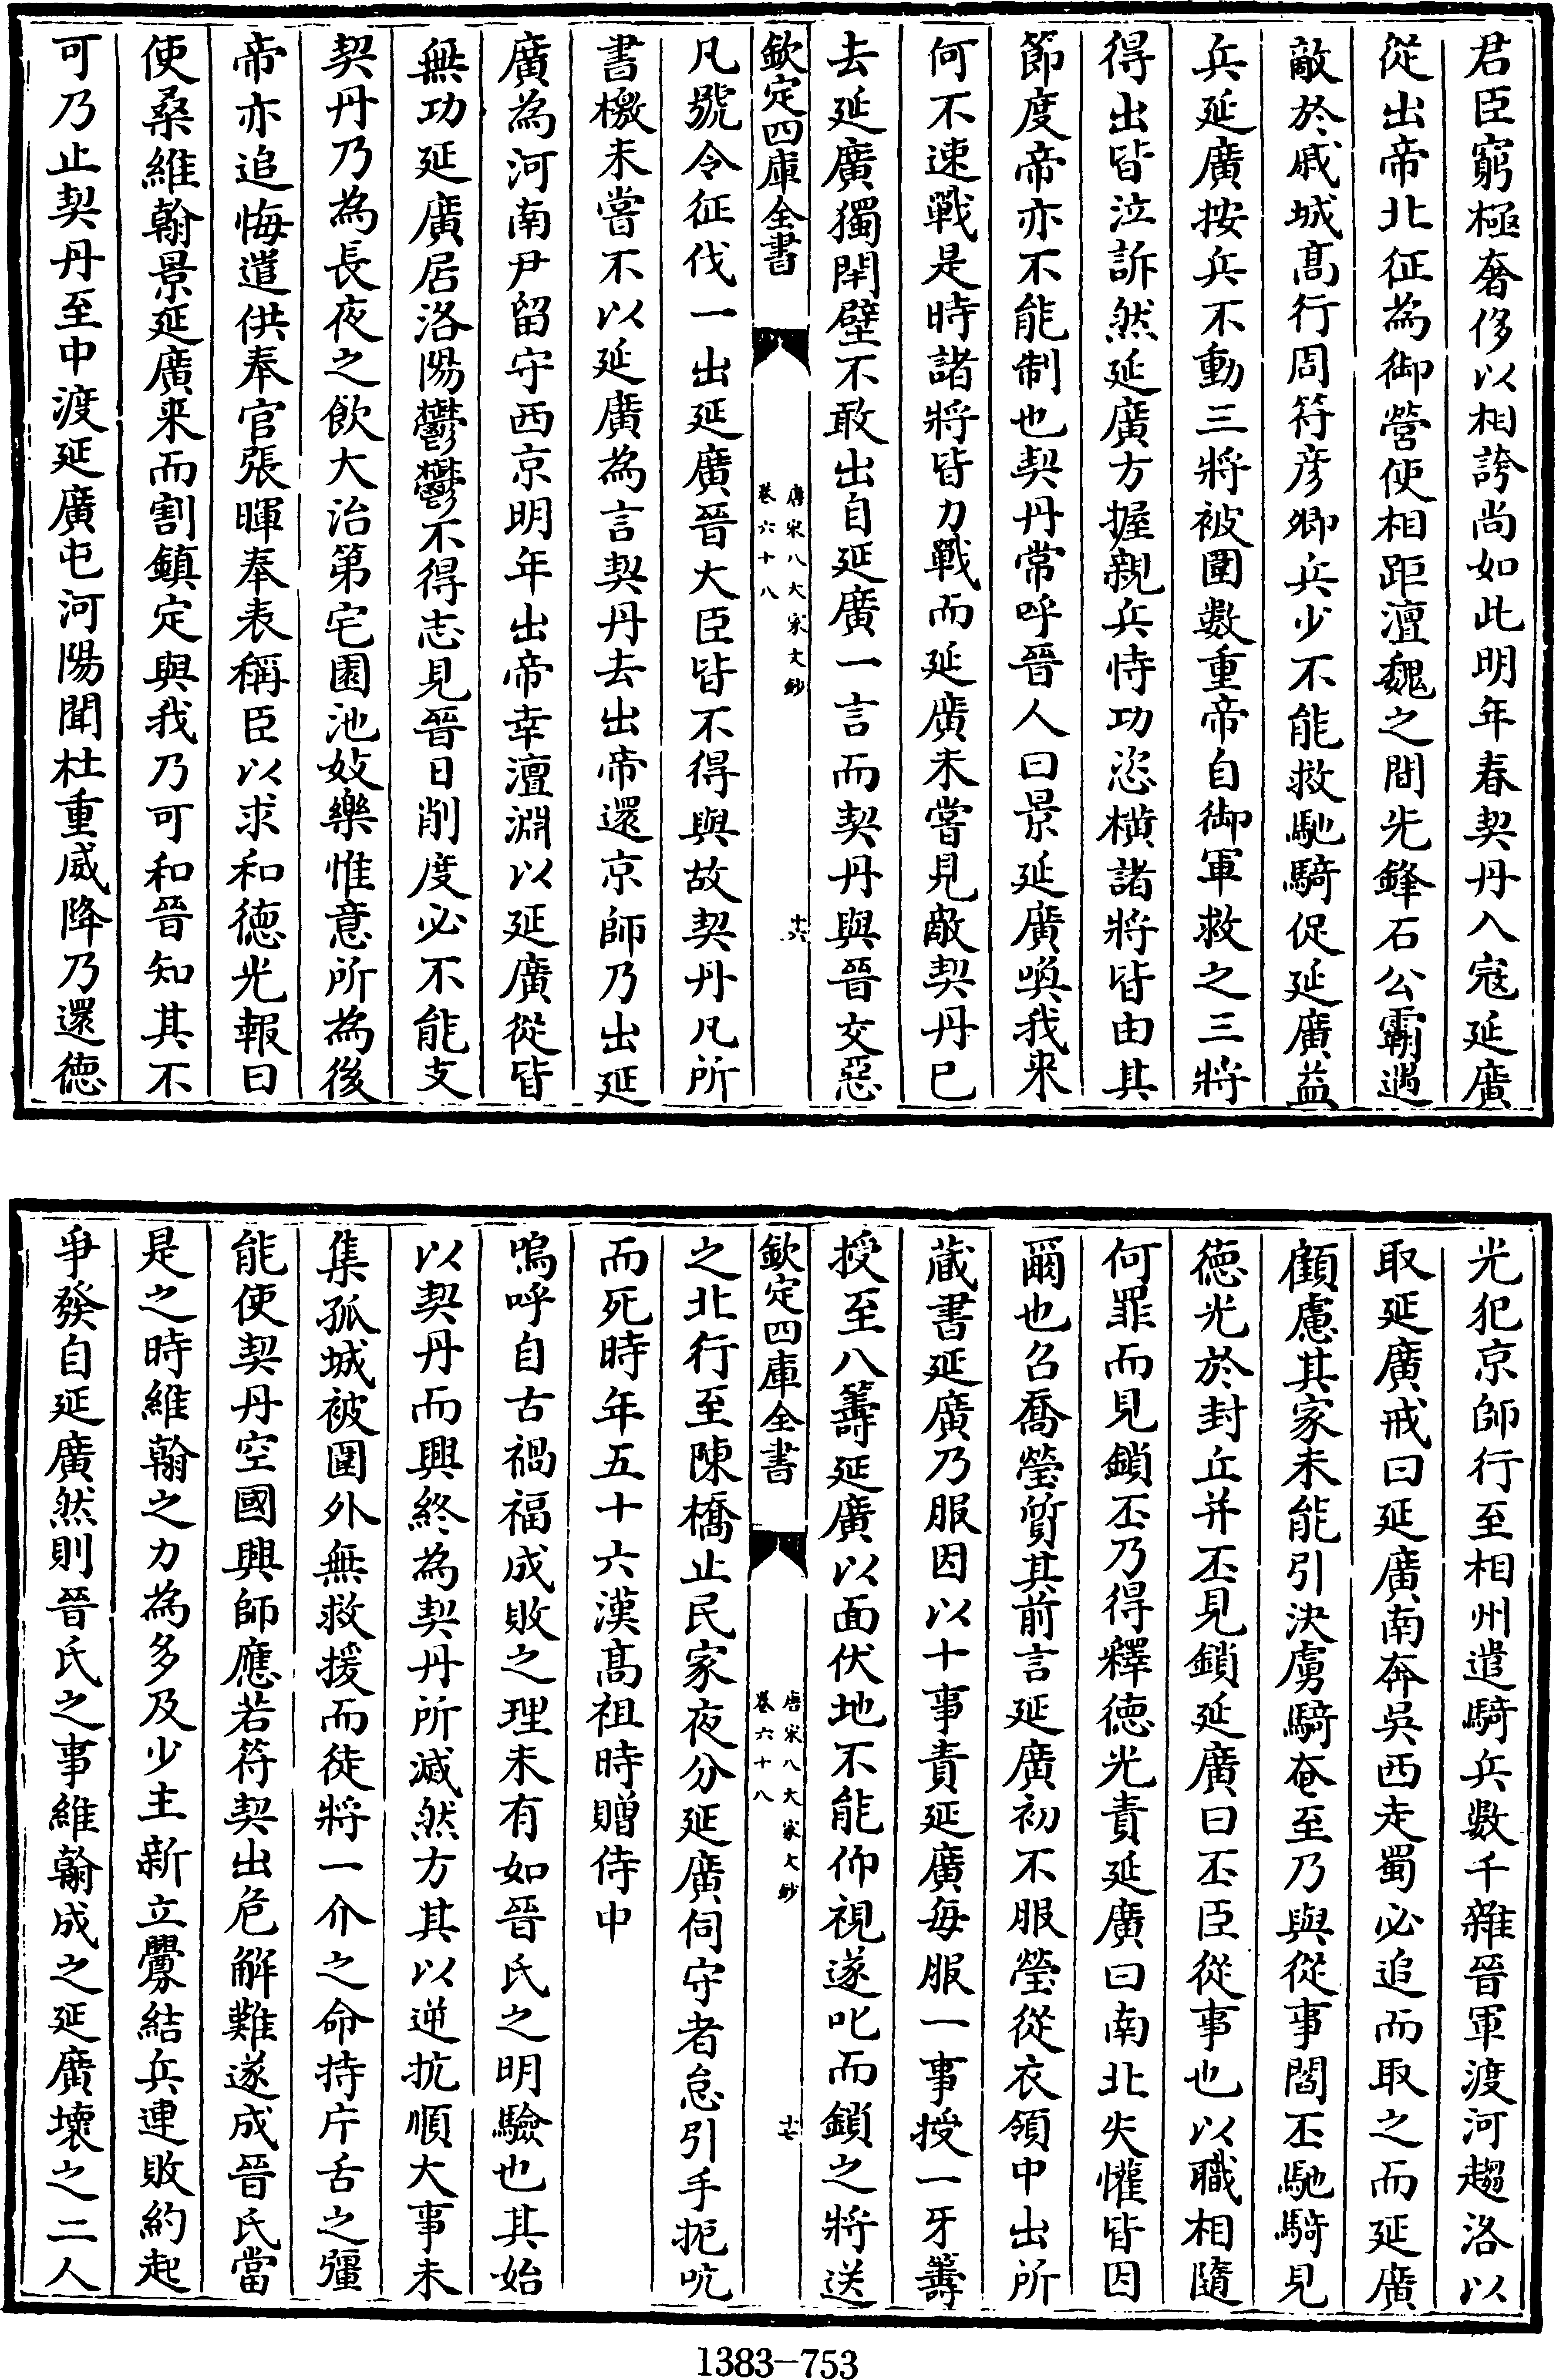 君臣窮極奢侈以相誇尚如此明年春契丹入寇延廣
從出帝北征為御營使相距澶魏之間先鋒石公霸遇
敵於戚城髙行周符彦卿兵少不能救馳騎促延廣益
兵延廣按兵不動三將被圍數重帝自御軍救之三將
得出皆泣訴然延廣方握親兵恃功恣横諸將皆由其
節度帝亦不能制也契丹常呼晉人曰景延廣喚我来
何不速戰是時諸將皆力戰而延廣未嘗見敵契丹已
去延廣獨閉壁不敢出自延廣一言而契丹與晉交惡
欽定四庫全書
唐宋八大家文鈔
卷六十八
十六
凡號令征伐一出延廣晉大臣皆不得與故契丹凡所
書檄未嘗不以延廣為言契丹去出帝還京師乃出延
廣為河南尹留守西京明年出帝幸澶淵以延廣從皆
無功延廣居洛陽鬱鬱不得志見晉日削度必不能支
契丹乃為長夜之飲大治第宅園池妓樂惟意所為後
帝亦追悔遣供奉官張暉奉表稱臣以求和徳光報曰
使桑維翰景延廣来而割鎮定與我乃可和晉知其不
可乃止契丹至中渡延廣屯河陽聞杜重威降乃還徳
光犯京師行至相州遣騎兵數千雜晉軍渡河趨洛以
取延廣戒曰延廣南奔吳西走蜀必追而取之而延廣
顧慮其家未能引決虜騎奄至乃與從事閻丕馳騎見
徳光於封丘并丕見鎖延廣曰丕臣從事也以職相隨
何罪而見鎖丕乃得釋徳光責延廣曰南北失懽皆因
爾也召喬瑩質其前言延廣初不服瑩從衣領中出所
藏書延廣乃服因以十事責延廣每服一事授一牙籌
授至八籌延廣以面伏地不能仰視遂叱而鎖之將送
欽定四庫全書
唐宋八大家文鈔
卷六十八
十七
之北行至陳橋止民家夜分延廣伺守者怠引手扼吭
而死時年五十六漢髙祖時贈侍中
嗚呼自古禍福成敗之理未有如晉氏之明驗也其始
以契丹而興終為契丹所滅然方其以逆抗順大事未
集孤城被圍外無救援而徒將一介之命持片舌之彊
能使契丹空國興師應若符契出危解難遂成晉氏當
是之時維翰之力為多及少主新立釁結兵連敗約起
爭發自延廣然則晉氏之事維翰成之延廣壞之二人
1383-753